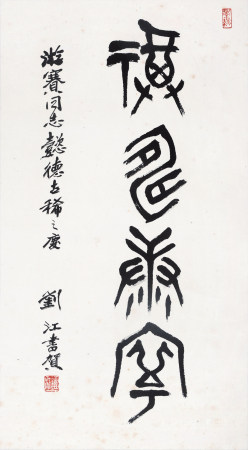 康寧
游賽同志懿德古稀之慶
劉江書賀